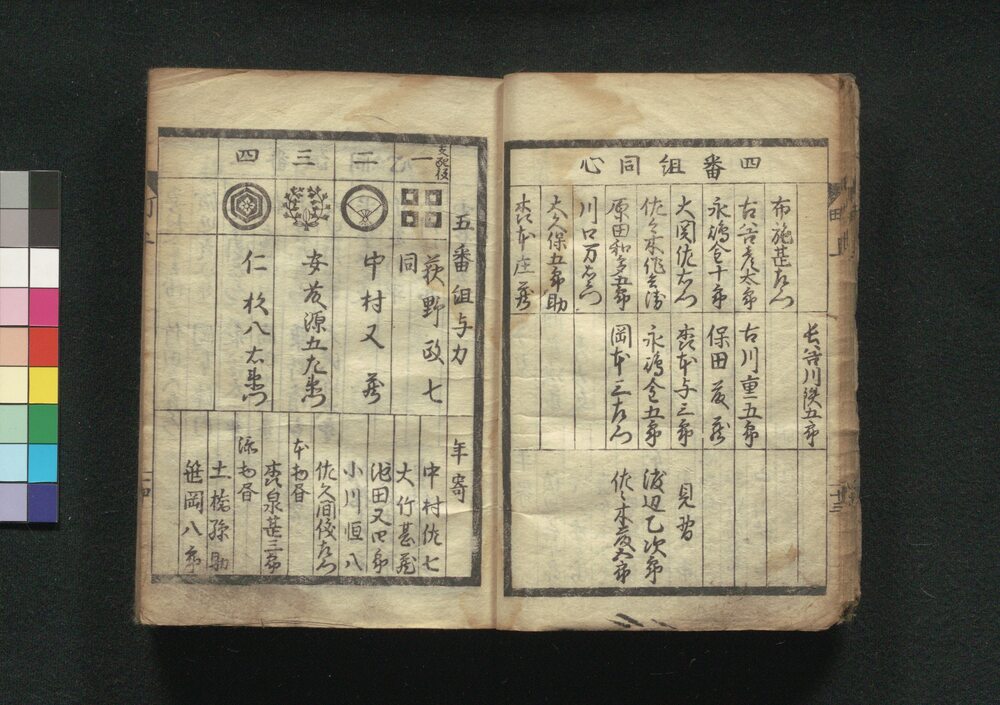 四番組同心
布施甚左衛門
古谷彦太郎
永嶋金十郎
大関佐右衛門
佐々木作兵衛
原田和多五郎
川口万右衛門
大久保五郎助
森本庄蔵
長谷川鉄五郎
古川重五郎
保田友蔵
森本与三郎
永嶋金五郎
岡本三右衛門
見習
渡辺乙次郎
佐々木友五郎
二十三
五番組与力
支配役
一
同
荻野政七
二
中村又蔵
三
安友源五左衛門
四
仁杉八右衛門
年寄
中村佐七
大竹甚蔵
池田又四郎
小川恒八
佐久間伝右衛門
本物書
森泉甚三郎
添物書
土橋孫助
笹岡八郎